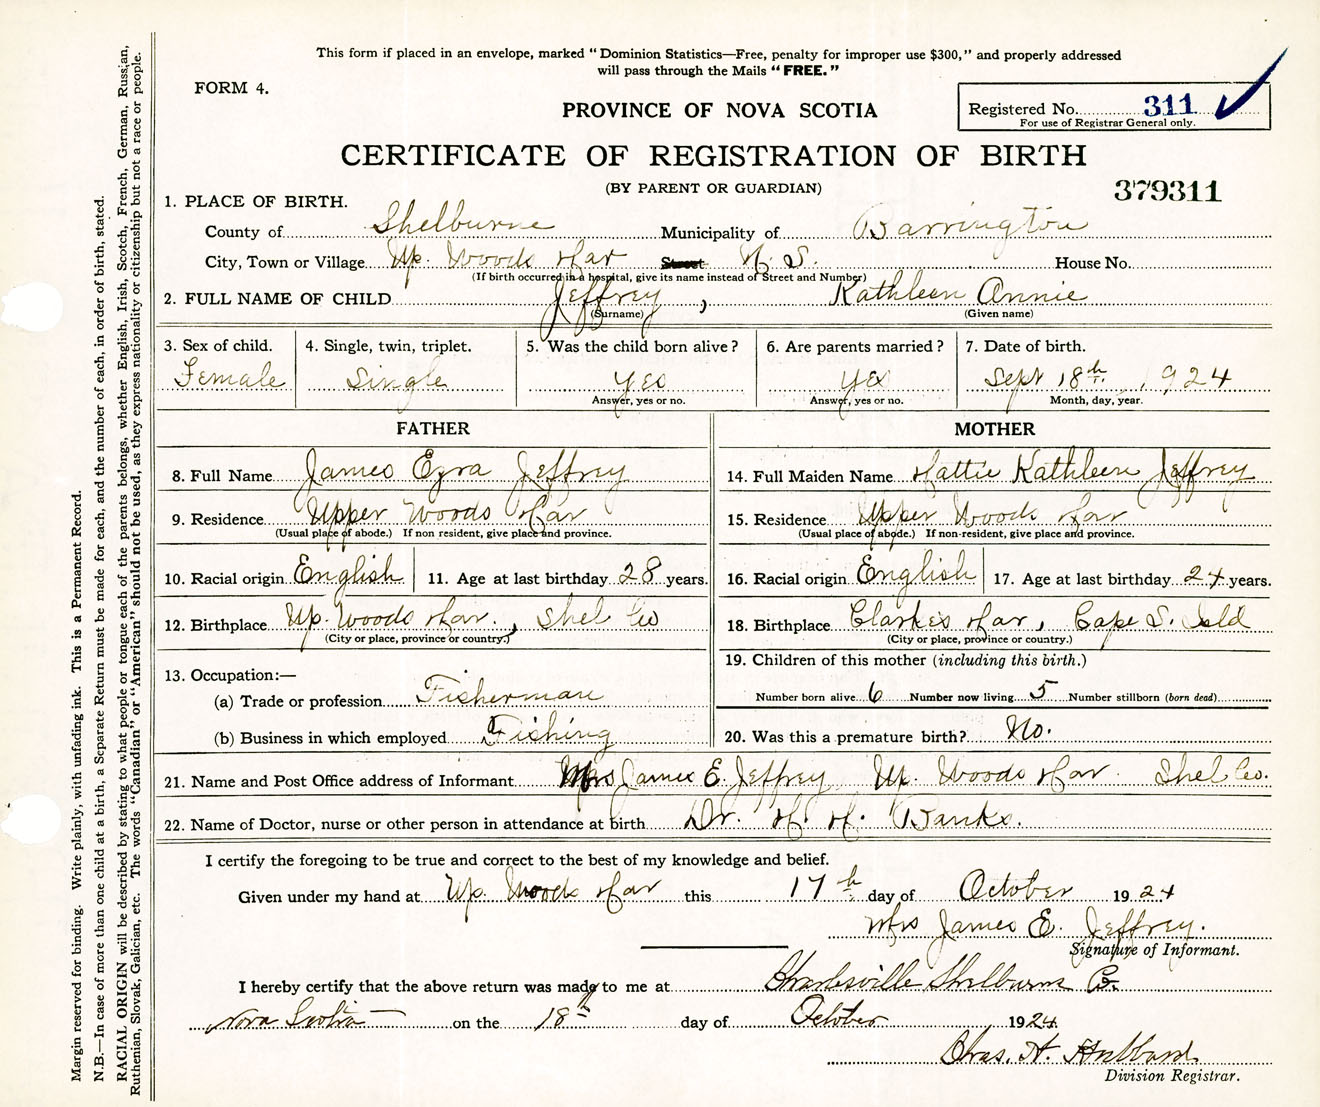 This form if placed in an envelope, marked "Dominion Statistics—Free, penalty for improper use $300," and properly addressed
will pass through the Mails "FREE."
FORM 4.
PROVINCE OF NOVA SCOTIA
Registered No. 311
For use of Registrar General only.
CERTIFICATE OF REGISTRATION OF BIRTH
(BY PARENT OR GUARDIAN)
379311
1. PLACE OF BIRTH.
County of Shelburne Municipality of Barrington
City, Town or Village Up. Woods Har Street N. S. House No.
(If birth occurred in a hospital, give its name instead of Street and Number)
2. FULL NAME OF CHILD Jeffrey, Kathleen Annie
(Surname) (Given name)
3. Sex of child. 4. Single, twin, triplet. 5. Was the child born alive? 6. Are parents married? 7. Date of birth.
Female Single Yes Yes Sept 18th 1924
Answer, yes or no. Answer, yes or no. Month, day, year.
FATHER MOTHER
8. Full Name James Ezra Jeffrey 14. Full Maiden Name Hattie Kathleen Jeffrey
9. Residence Upper Woods Har 15. Residence Upper Woods Har
(Usual place of abode.) If non resident, give place and province. (Usual place of abode.) If non-resident, give place and province.
10. Racial origin English 11. Age at last birthday 28 years. 16. Racial origin English 17. Age at last birthday 24 years.
12. Birthplace Up. Woods Har., Shel Co 18. Birthplace Clarkes Har, Cape S. Isld
(City or place, province or country.) (City or place, province or country.)
13. Occupation:— 19. Children of this mother (including this birth.)
(a) Trade or profession Fisherman Number born alive 6 Number now living 5 Number stillborn (born dead)
(b) Business in which employed Fishing 20. Was this a premature birth? No.
21. Name and Post Office address of Informant Mrs James E. Jeffrey Up. Woods Har Shel Co.
22. Name of Doctor, nurse or other person in attendance at birth Dr. H. H. Banks.
I certify the foregoing to be true and correct to the best of my knowledge and belief.
Given under my hand at Up. Woods Har this 17th day of October 1924
Mrs James E. Jeffrey.
Signature of Informant.
I hereby certify that the above return was made to me at Charlesville Shelburne Co.
Nova Scotia on the 18th day of October 1924
Chas. H. Hubbard
Division Registrar.
Margin reserved for binding. Write plainly, with unfading ink. This is a Permanent Record.
N.B.—In case of more than one child at a birth, a Separate Return must be made for each, and the number of each, in order of birth, stated.
RACIAL ORIGIN will be described by stating to what people or tongue each of the parents belongs, whether English, Irish, Scotch, French, German, Russian,
Ruthenian, Slovak, Galician, etc. The words "Canadian" or "American" should not be used, as they express nationality or citizenship but not a race or people.